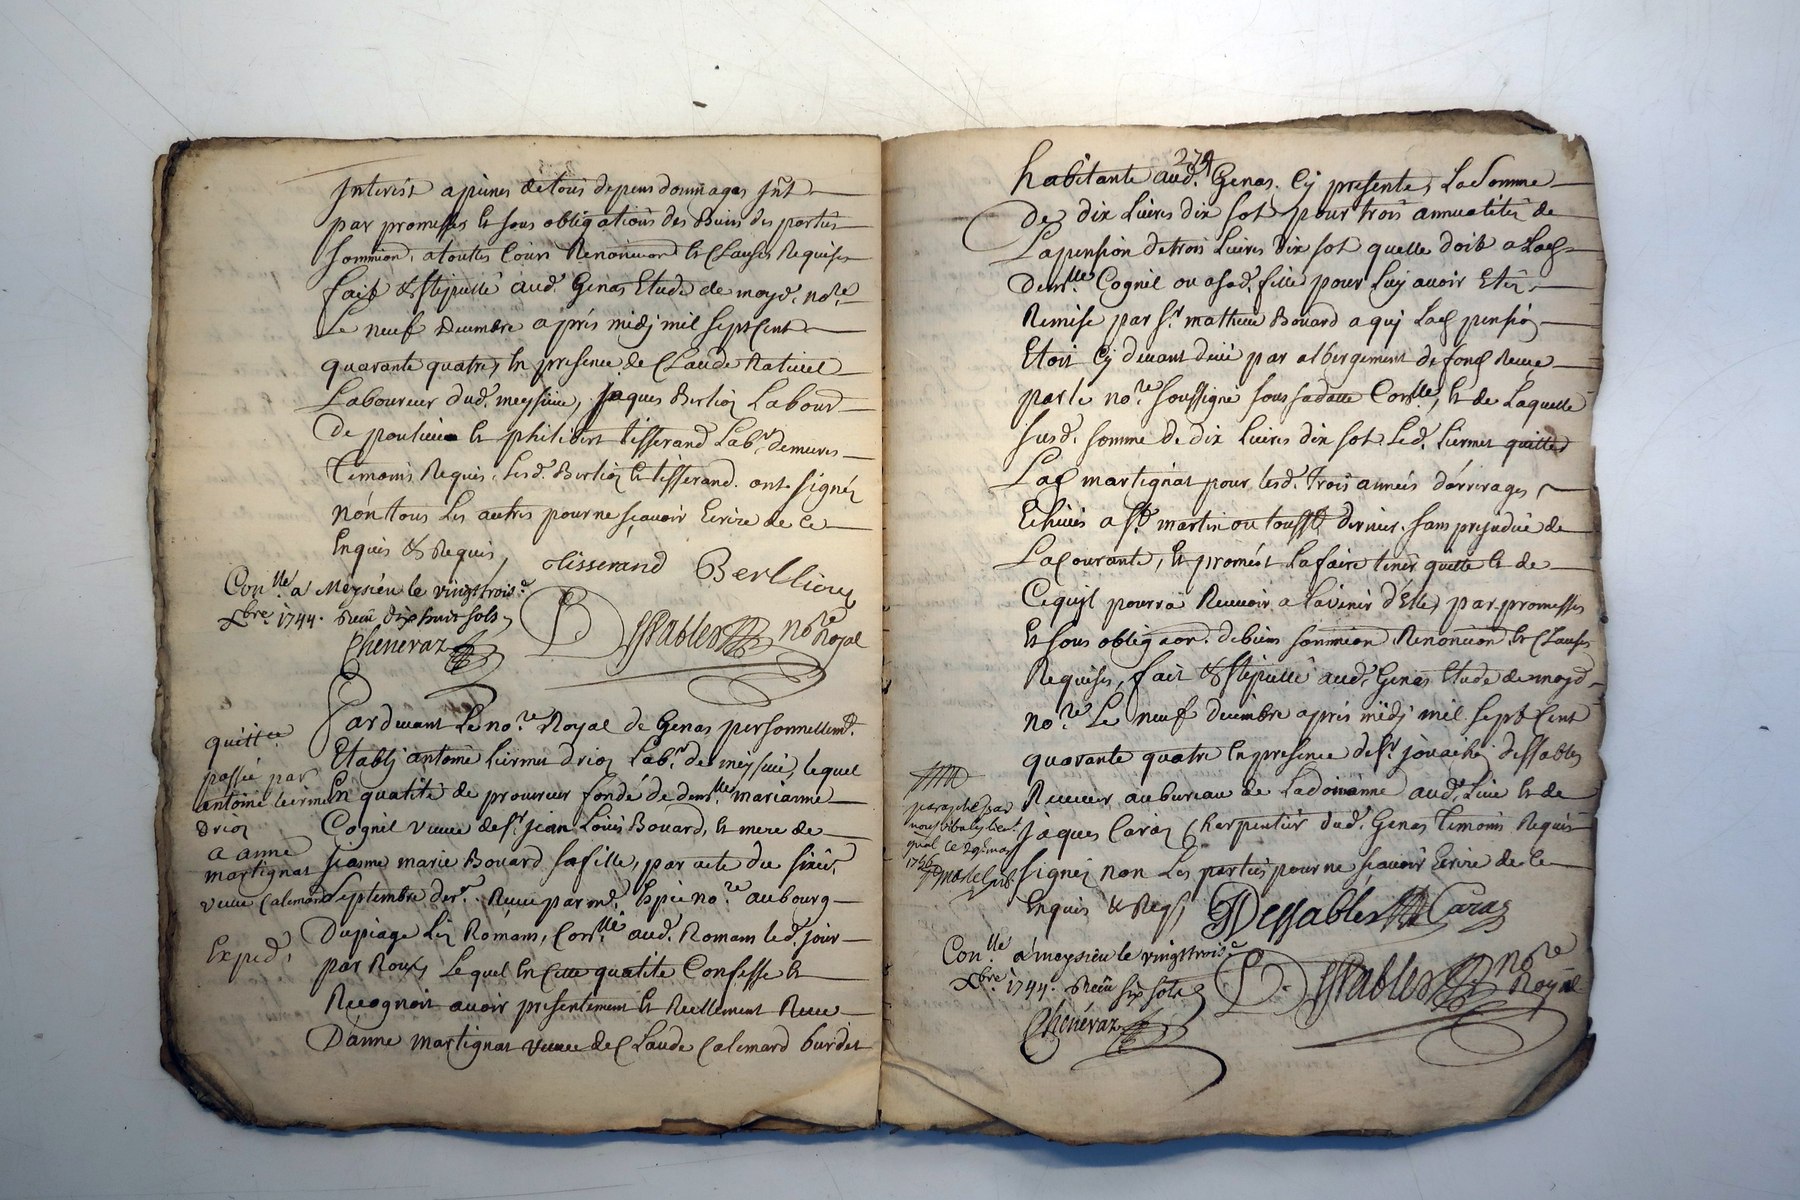 Interest a peines de tous depens dommages Jnt
par promesses et sous obligations des Biens des parties
sommion, a toutes Cours Renonciaon et Clauses Requises
fait & stipullé aud. Genas Etude de moyd. no.re
Le neuf decembre aprés midj mil sept Cent
quarante quatre, En presence de Claude
Laboureur dud. meysieu, Jaques Berlioz Labour
De et philibert tisserand Lab.r demeure
Temoins Requis, Lesd. Berlioz et tisserand. ont signés
nón tous Les autres pour ne sçavoir Ecrire de ce
Enquis & Requis,
tisserand Berllioux
Con.lle a Meysieu le vingttrois.e
Xbre 1744. Receu dix huit sols
Cheneraz
Dessables no.re Royal
quittce
passée par
antoine Leirmen
Drioz
a anne
martignat
veuve Calemard
Exped.
Pardevant Le no.re Royal de Genas personnellem.t
Etablj antoine Liermen drioz Lab.r de meysieu, lequel
En qualité de procureur fondé de dem.lle marianne
Cognil veuve de s.r jean Louis Bouard, et mere de
marie Bouard sa fille, par acte du
Septembre der.r Receu par me. no.re au bourg
Dupiage Lez Romans, Con.llé aud. Romans led. jour
par Roux, Lequel En Cette qualité Confesse et
Recognoit avoir presentement et Reellement Receu
D'anne martignat veuve de Claude Calemard burdet
274
habitante aud. Genas. Cy presente, La Somme
de dix Livres dix sol pour trois annuatités de
La pension de trois Livres dix sol quelle doit a Lad
dem.lle Cognil ou a sad. fille pour Luy avoir Eté
Remise par s.r mathieu Bouard a quj Lad pension
Etoit Cy devant deüe par albergement de fond Receu
par le no.re soussigné sous sa datte Con.lle, et de Laquelle
susd. somme de dix Livres dix sol. Led. Liermen quitte
Lad martignat pour lesd. trois années d'arrerages
Echües a s.t martin ou touss.t dernier. sans prejudice de
La Courante, Et promêt La faire tenir quitte et de
Ce quil pourra Recevoir a l'avenir d'Elle, par promesses
Et sous obligaon. de biens sommion Renoncion et Clauses
Requises, fait & stipullé aud. Genas Etude de moyd
no.re Le neuf decembre aprés midj mil sept Cent
quarante quatre En presence de s.r dessables
Receveur au bureau de La doüanne aud. Lieu et de
jâques Caraz Charpentier dud. Genas temoins Requis
signés non Les parties pour ne sçavoir Ecrire de ce
Enquis & Reqs
paraphé par
nous
ce 29e may
Dessables Caraz
Con.lle a meysieu le vingttrois.e
Xbre 1744. Receu six sols
Cheneraz
Dessables no.re Royal